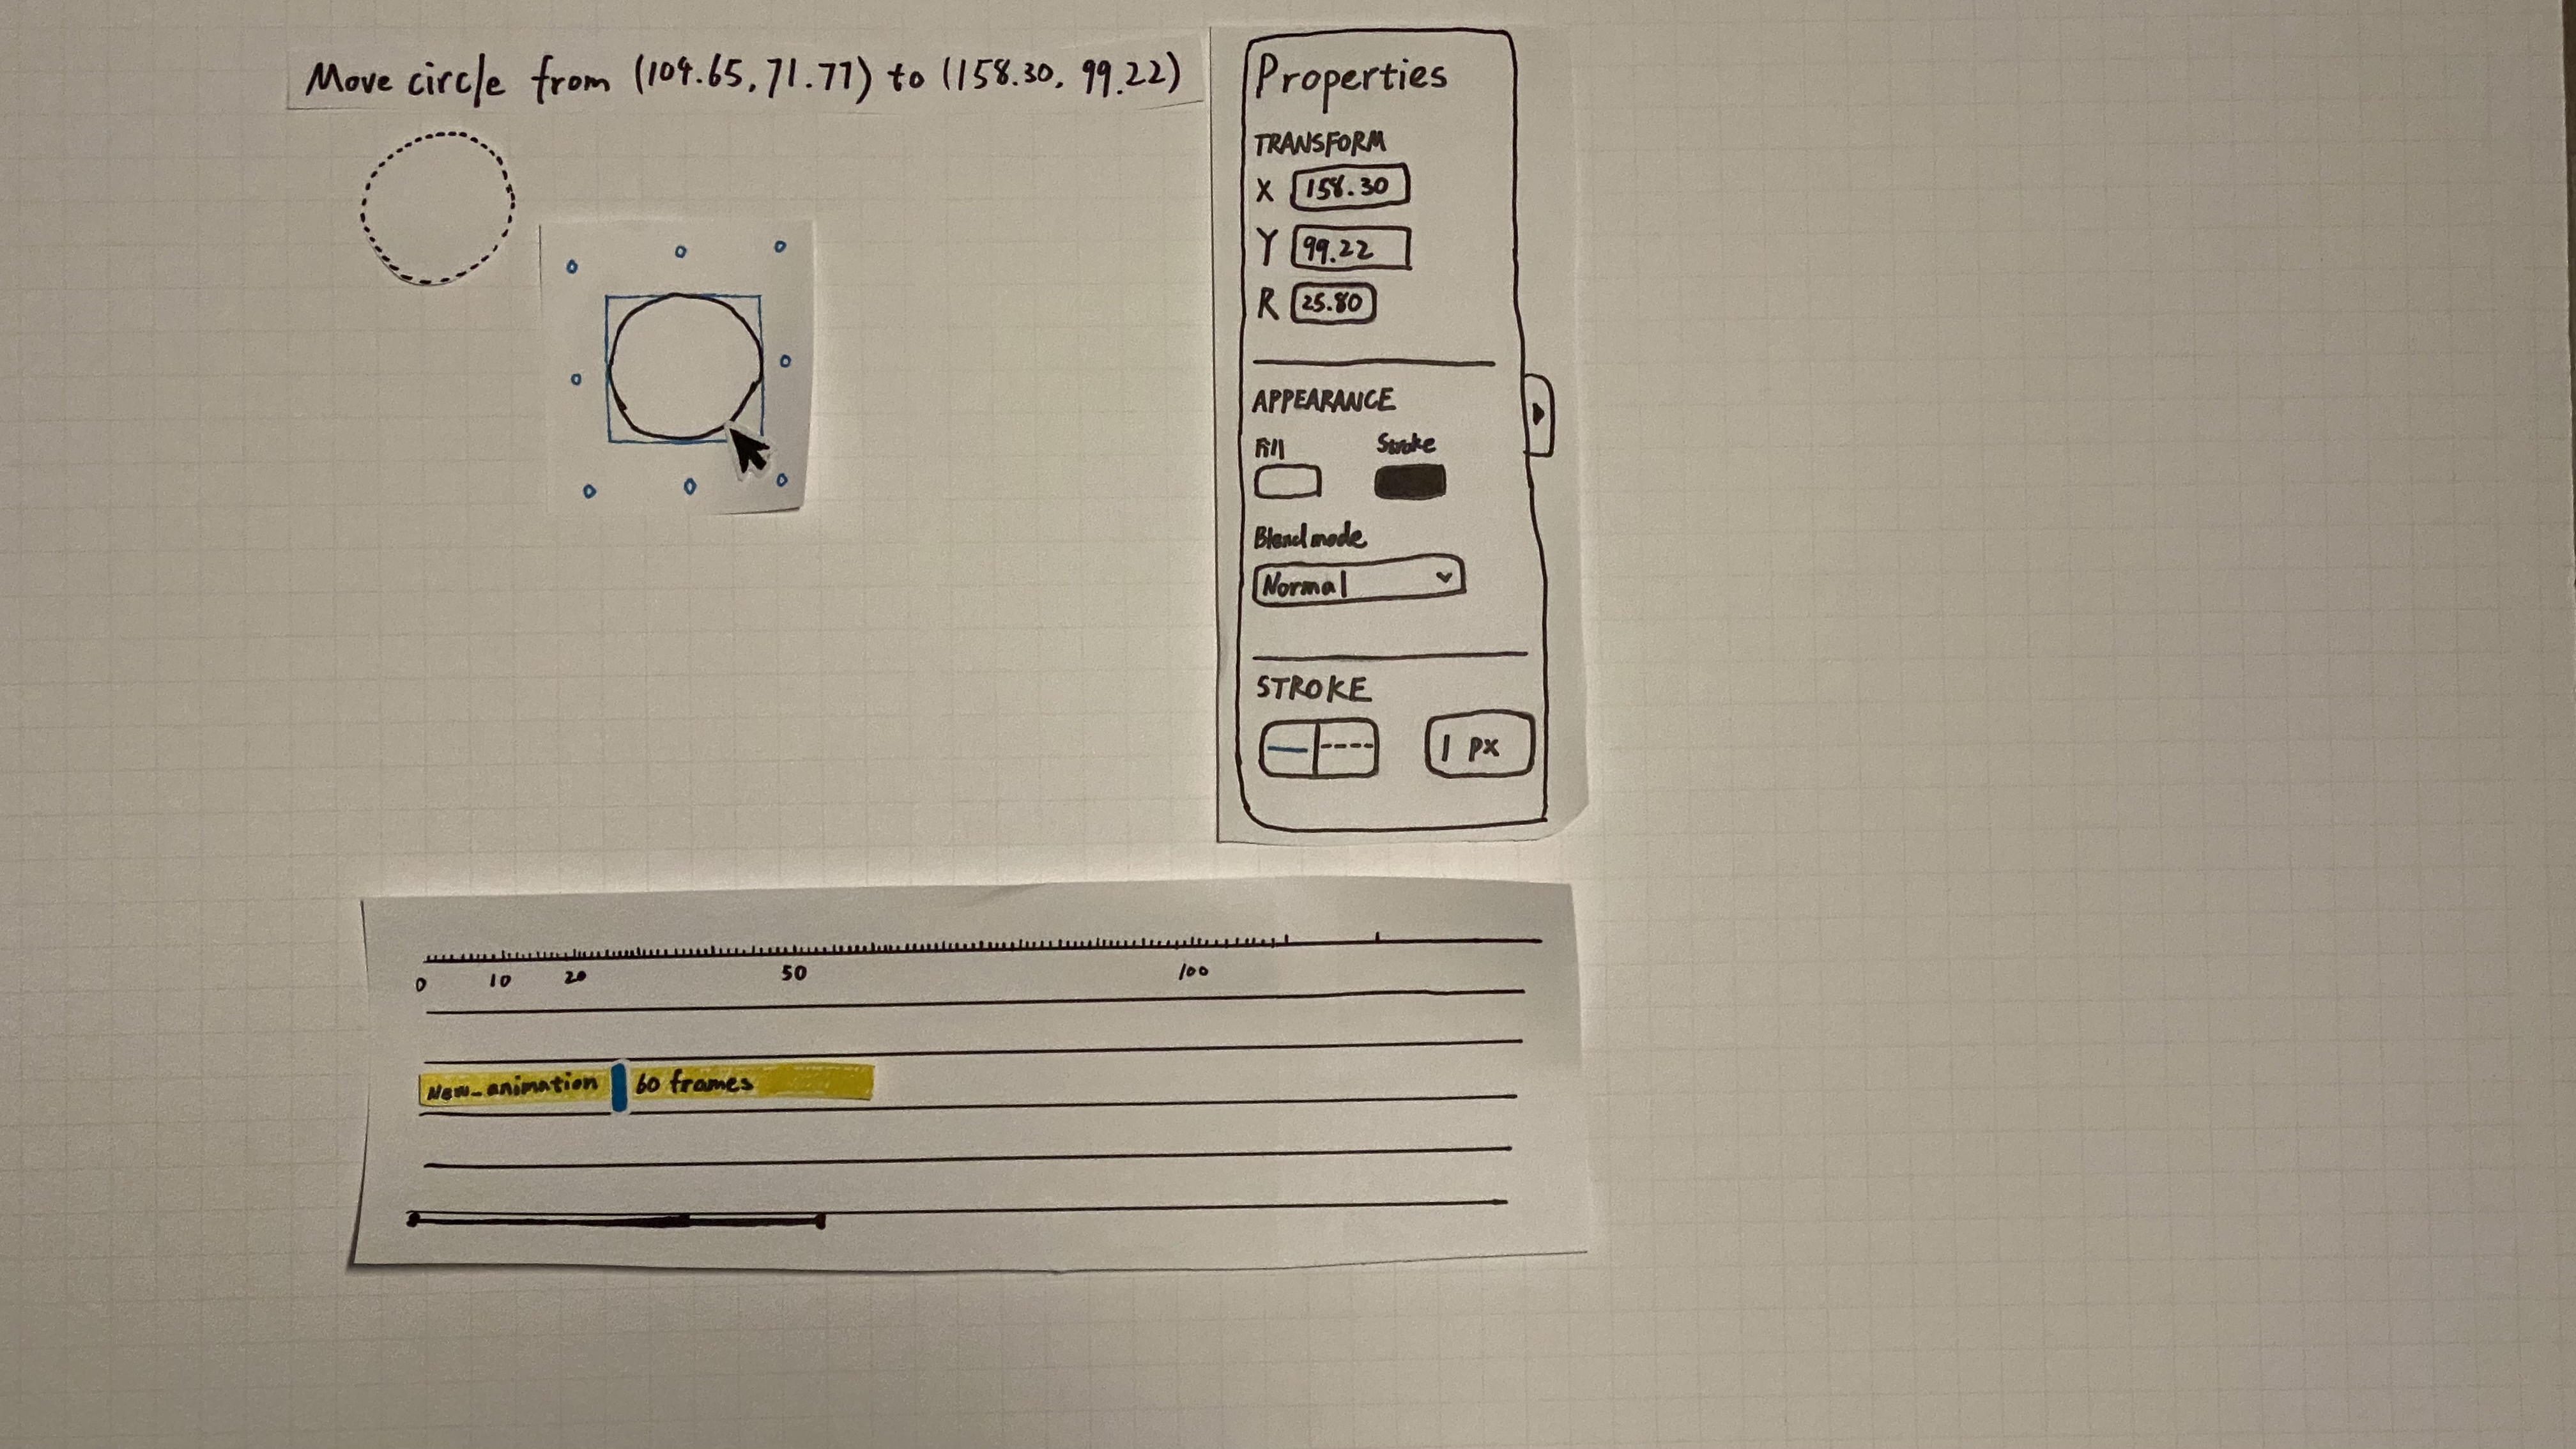 Move circle from (104.65, 71.77) to (158.30, 99.22)
Properties
TRANSFORM
X 158.30
Y 99.22
R 25.80
APPEARANCE
Fill Stroke
Blend mode
Normal
STROKE
1 px
0 10 20 50 100
New_animation 60 frames